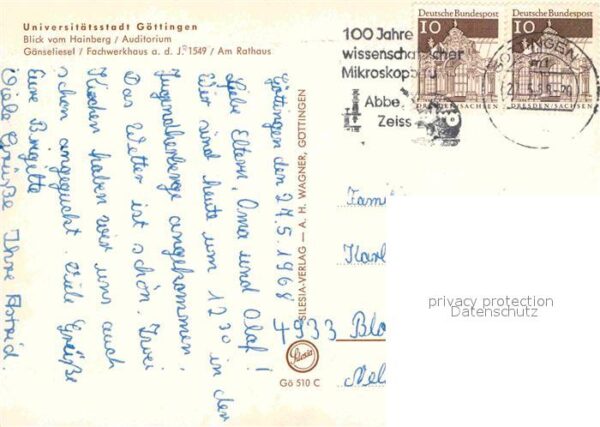 Universitätsstadt Göttingen
Blick vom Hainberg / Auditorium
Gänseliesel / Fachwerkhaus a. d. J. 1549 / Am Rathaus
Göttingen den 27.5.1968
Liebe Eltern, Oma und Olaf!
Wir sind heute um 12 30 in der
Jugendherberge angekommen.
Das Wetter ist schön. Zwei
Kirchen haben wir uns auch
schon angeguckt. Viele Grüße
Eure Brigitte
Viele Grüße Ihre Astrid.
SILESIA-VERLAG — A. H. WAGNER, GÖTTINGEN
Silesia
Gö 510 C
100 Jahre
wissenschaftlicher
Mikroskopbau
Abbe
Zeiss
Deutsche Bundespost
10
DRESDEN/SACHSEN
Deutsche Bundespost
10
DRESDEN/SACHSEN
GÖTTINGEN
Fami
Karl
4933 Blo
privacy protection
Datenschutz